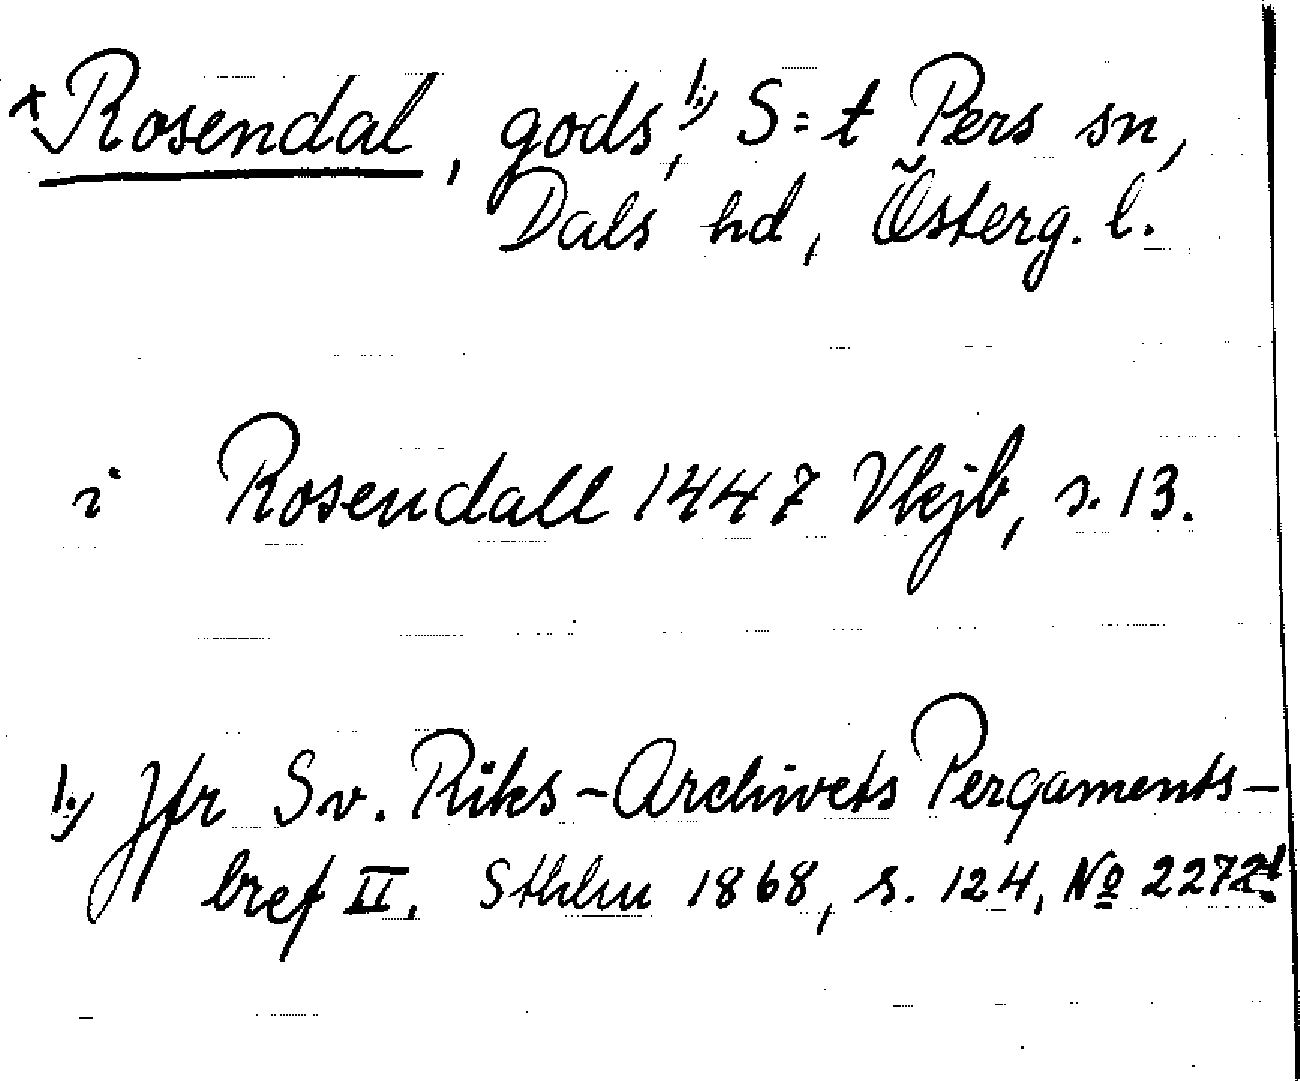 ×Rosendal, gods,¹⁾ S:t Pers sn,
Dals hd, Österg. l.
i Rosendall 1447 Vkjb, s. 13.
1) Jfr Sv. Riks-Archivets Pergaments-
bref II. Sthlm 1868, s. 124, No 2272!